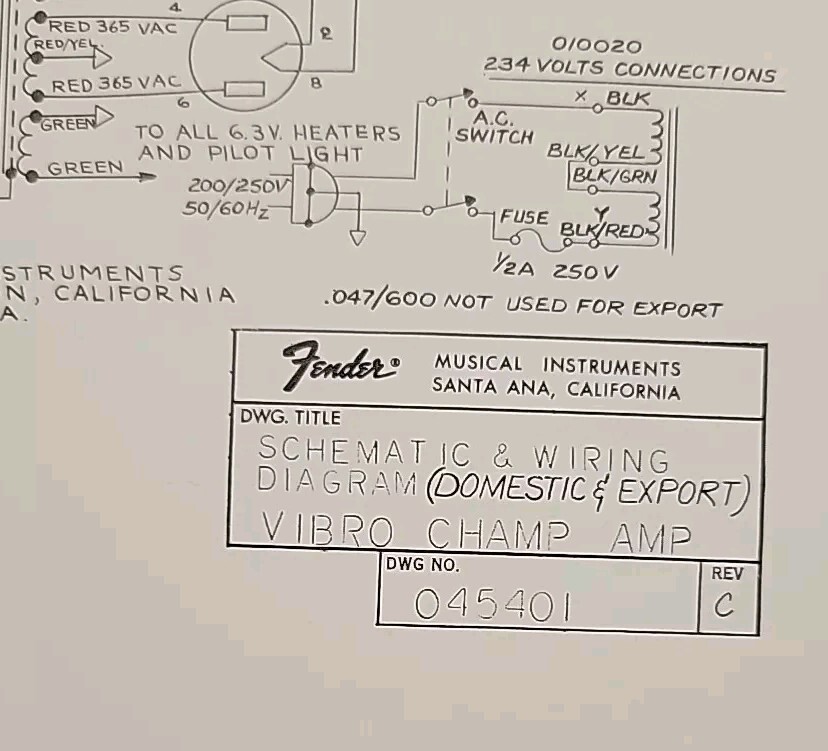 4
RED 365 VAC
RED/YEL.
2
8
RED 365 VAC
6
GREEN
GREEN
TO ALL 6.3V. HEATERS
AND PILOT LIGHT
200/250V
50/60Hz
010020
234 VOLTS CONNECTIONS
X BLK
A.C.
SWITCH
BLK/YEL
BLK/GRN
FUSE
Y
BLK/RED
1/2A 250V
STRUMENTS
N, CALIFORNIA
A.
.047/600 NOT USED FOR EXPORT
Fender®
MUSICAL INSTRUMENTS
SANTA ANA, CALIFORNIA
DWG. TITLE
SCHEMATIC & WIRING
DIAGRAM (DOMESTIC & EXPORT)
VIBRO CHAMP AMP
DWG NO.
045401
REV
C